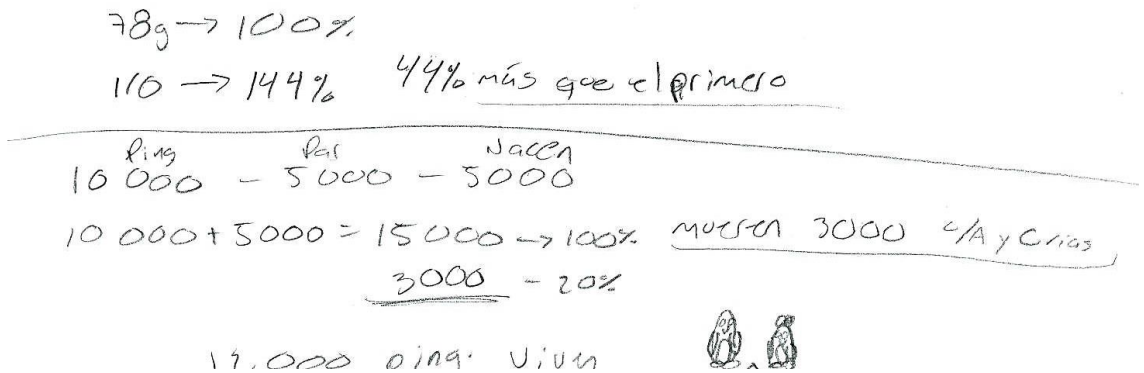 78g → 100%
110 → 144% 44% más que el primero
Ping Par Nacen
10 000 - 5000 - 5000
10 000 + 5000 = 15000 → 100% mueren 3000 c/A y Crias
3000 - 20%
12,000 ping. viven